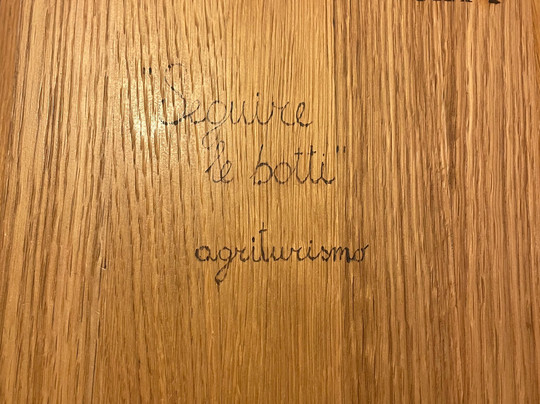 "Seguire
le botti"
agriturismo